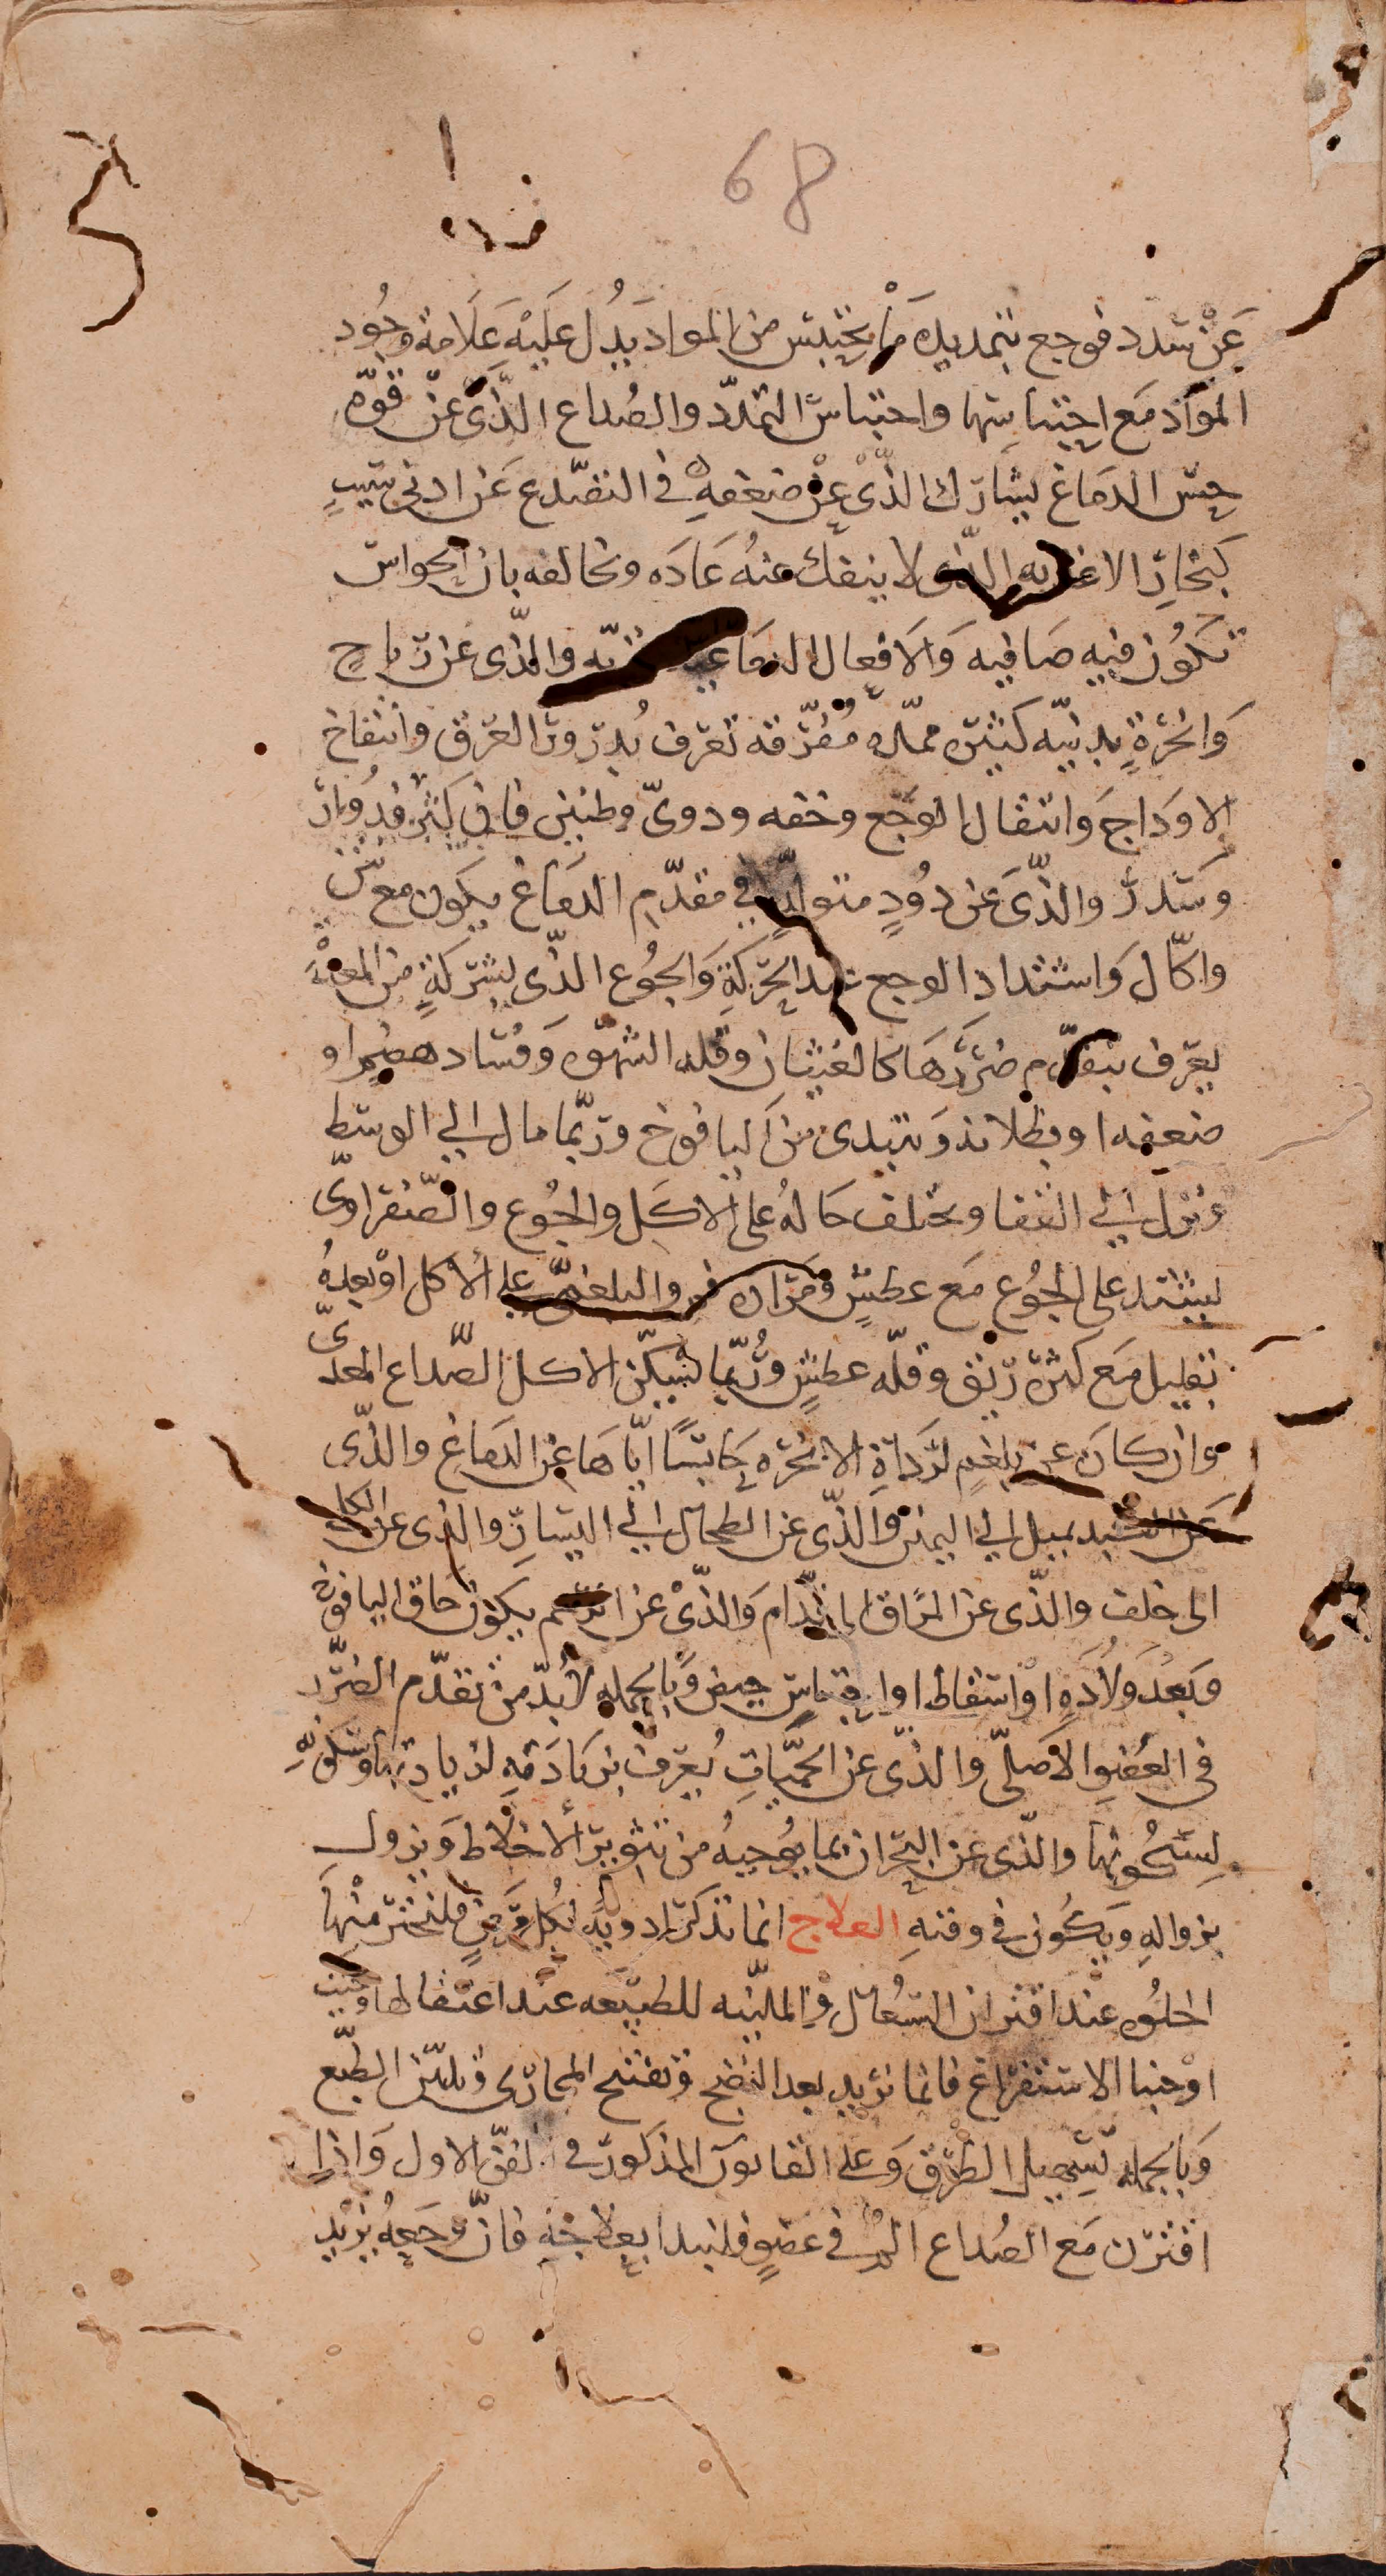 68
عَنْ سدد فوجع بتمديده مَا يحتبس من المواد يَدُل عَليْه عَلامة وجُود
المواد مَع احتباسها واحتباسُ التمدّد والصُداع الذَّى عنْ قوّه
حِسّ الدمَاغ يشارك الذّى عنْ ضعفهِ فى التصّدع عَن ادنى سَببٍ
كَبخارِ الاغذيه الذّى لا ينفك عنهُ عَادَه وتخالفه بان الحواسّ
تكوُن فيهِ صَافيه وَالافعال الدمَاغيه والذّى عن رياحٍ
وَابخرةٍ بدنيّه كثيره ممدّده مُفرّقه تعرَف بدرورُ العرَق وانتفاخ
الاوداجَ وَانتقال الوَجع وخفه ودوىّ وطنين فان كثر فدُوار
وسَدر والذّىَ عَن دُودٍ متولّدٍ فى مقدّم الدمَاغ يكون مع نتن
واكّال وَاشتداد الوجع عند الحرَكةِ وَالجُوع الذّى بشركةٍ من المعدَةِ
يعرَف بتقدّم ضرَرَهَا كالغثيان وقله الشهوّه وَفسَاد هضمٍ او
ضعفه او بطلانه وَيبتدى من اليافوخ وربّما مال الى الوسَط
ونزل الىَ القفا ويختلف حَالهُ على الاكَل والجُوع والصَّفراوىّ
يشتد على الجُوع مَع عطشٍ وَمَرَاره فمٍ والبلغمىّ على الاكل اوْ بعدهُ
بقليل مَع كثرة ريق وقلّه عطشٍ وَرُبّما يسَكّن الاكل الصّداع المعدىّ
وان كانَ عن بلغمٍ لرَدَاةِ الابخرَه حَابسًا ايّاهَا عن الدمَاغ والذّى
عَن الكبد يميل الى اليمنى وَالذّى عن الطحال الىَ اليسَارِ والذى عن الكلى
الى خلف والذّى عن المرَاق الى قدّام وَالذّىْ عن الرحم يكون حَاق اليافوخ
وَبَعْدَ وَلادَهٍ اوْ اسقاط او احتباسٍ حيض وَبالجمله لابُدّ من تقدّم الضّرَر
فى العُضو الاصَلىّ والذّى عن الحميّاتِ يُعرَف بزيَادَتهِ لزيادتها وَسكونهِ
لِسُكُونها والذّى عن البحران بما يُوجبهُ من تثوير الأخلاط وَيزول
بزوالهِ وَيكُون فى وقتهِ العلاج انما نذكر ادويَة لكُل مَرضٍ فلنختر مْنهَا
الحلُوه عند اقتران السُعَال وَالمليّنه للطبيعَه عند اعتقالها وحيث
اوْجبنا الاستفراغ فانما نريد بعد النضج وتفتح المجارى وتليّن الطّبع
وَبالجمله تسهيل الطرُق وَعلى القانون المذكور فى الفنّ الاول وَاذا
اقترن مَع الصُداع المُ فى عضوٍ فليبدا بعلاجهِ فانّ وَجعهُ يزيد